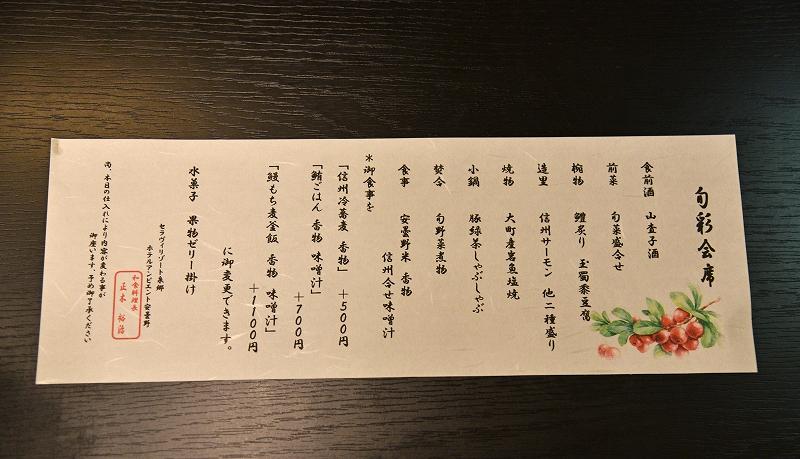 旬彩会席
食前酒 山査子酒
前菜 旬菜盛合せ
椀物 鱧炙り 玉蜀黍豆腐
造里 信州サーモン 他二種盛り
焼物 大町産岩魚塩焼
小鍋 豚緑茶しゃぶしゃぶ
焚合 旬野菜煮物
食事 安曇野米 香物
信州合せ味噌汁
*御食事を
「信州冷蕎麦 香物」 +500円
「鮪ごはん 香物 味噌汁」
+700円
「鰻もち麦釜飯 香物 味噌汁」
+1100円
に御変更できます。
水菓子 果物ゼリー掛け
セラヴィリゾート泉郷
ホテルアンビエント安曇野
和食料理長
正木 裕浩
尚、本日の仕入れにより内容が変わる事が
御座います、予め御了承ください